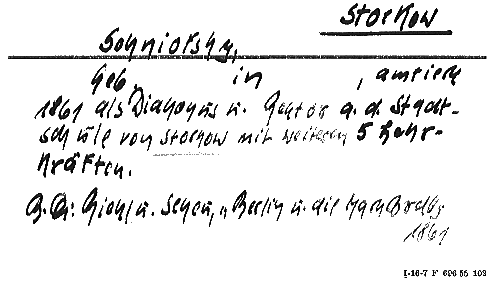 Storkow
Schniorsky,
Geb. in , amtiert
1861 als Diakonus u. Rektor a. d. Stadt-
schule von Storkow mit weiteren 5 Lehr-
kräften.
B. Qu: Riehl u. Scheu, "Berlin u. die Mark Brdbg
1861
I-16-7 F 696 55 103